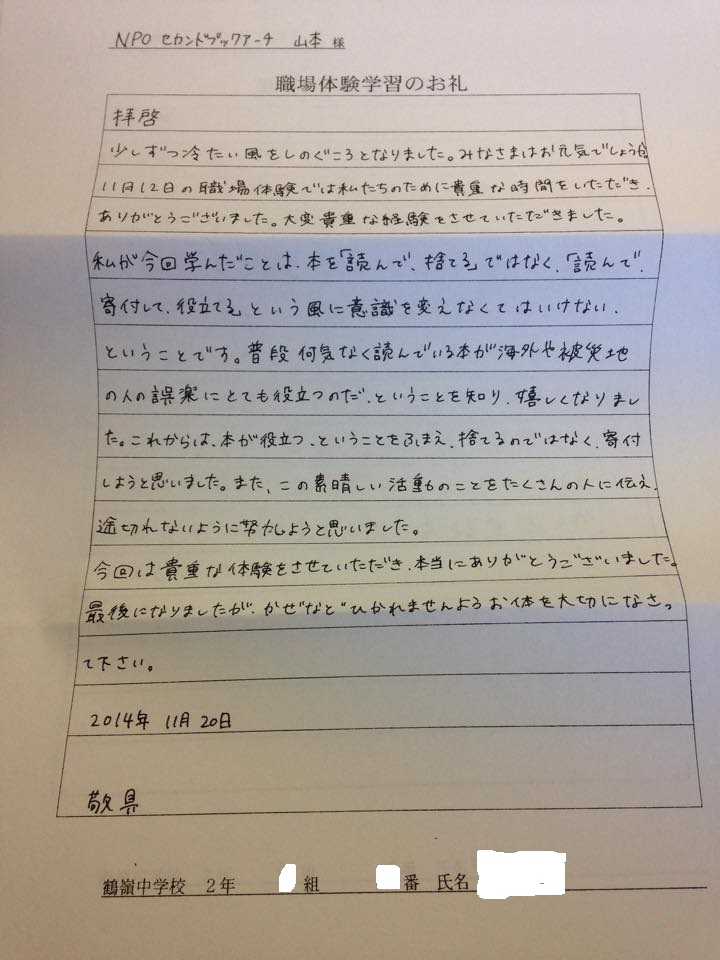 NPO セカンドブックアーチ 山本 様
職場体験学習のお礼
拝啓
少しずつ冷たい風をしのぐころとなりました。みなさまはお元気でしょうか
11月12日の職場体験では私たちのために貴重な時間をいただき、
ありがとうございました。大変貴重な経験をさせていただきました。
私が今回学んだことは、本を「読んで、捨てる」ではなく、「読んで、
寄付して、役立てる」という風に意識を変えなくてはいけない、
ということです。普段何気なく読んでいる本が海外や被災地
の人の誤楽にとても役立つのだ、ということを知り、嬉しくなりまし
た。これからは、本が役立つ、ということをふまえ、捨てるのではなく、寄付
しようと思いました。また、この素晴しい活動のことをたくさんの人に伝え、
途切れないように努力しようと思いました。
今回は貴重な体験をさせていただき、本当にありがとうございました。
最後になりましたが、かぜなどひかれませんようお体を大切になさっ
て下さい。
2014年 11月 20日
敬具
鶴嶺中学校 2年 組 番 氏名